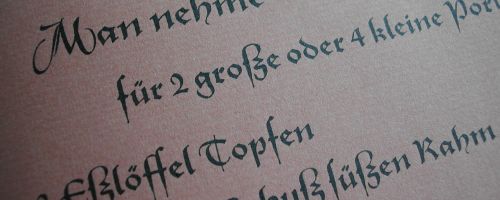 Man nehme
für 2 große oder 4 kleine Por
Eßlöffel Topfen
süßen Rahm